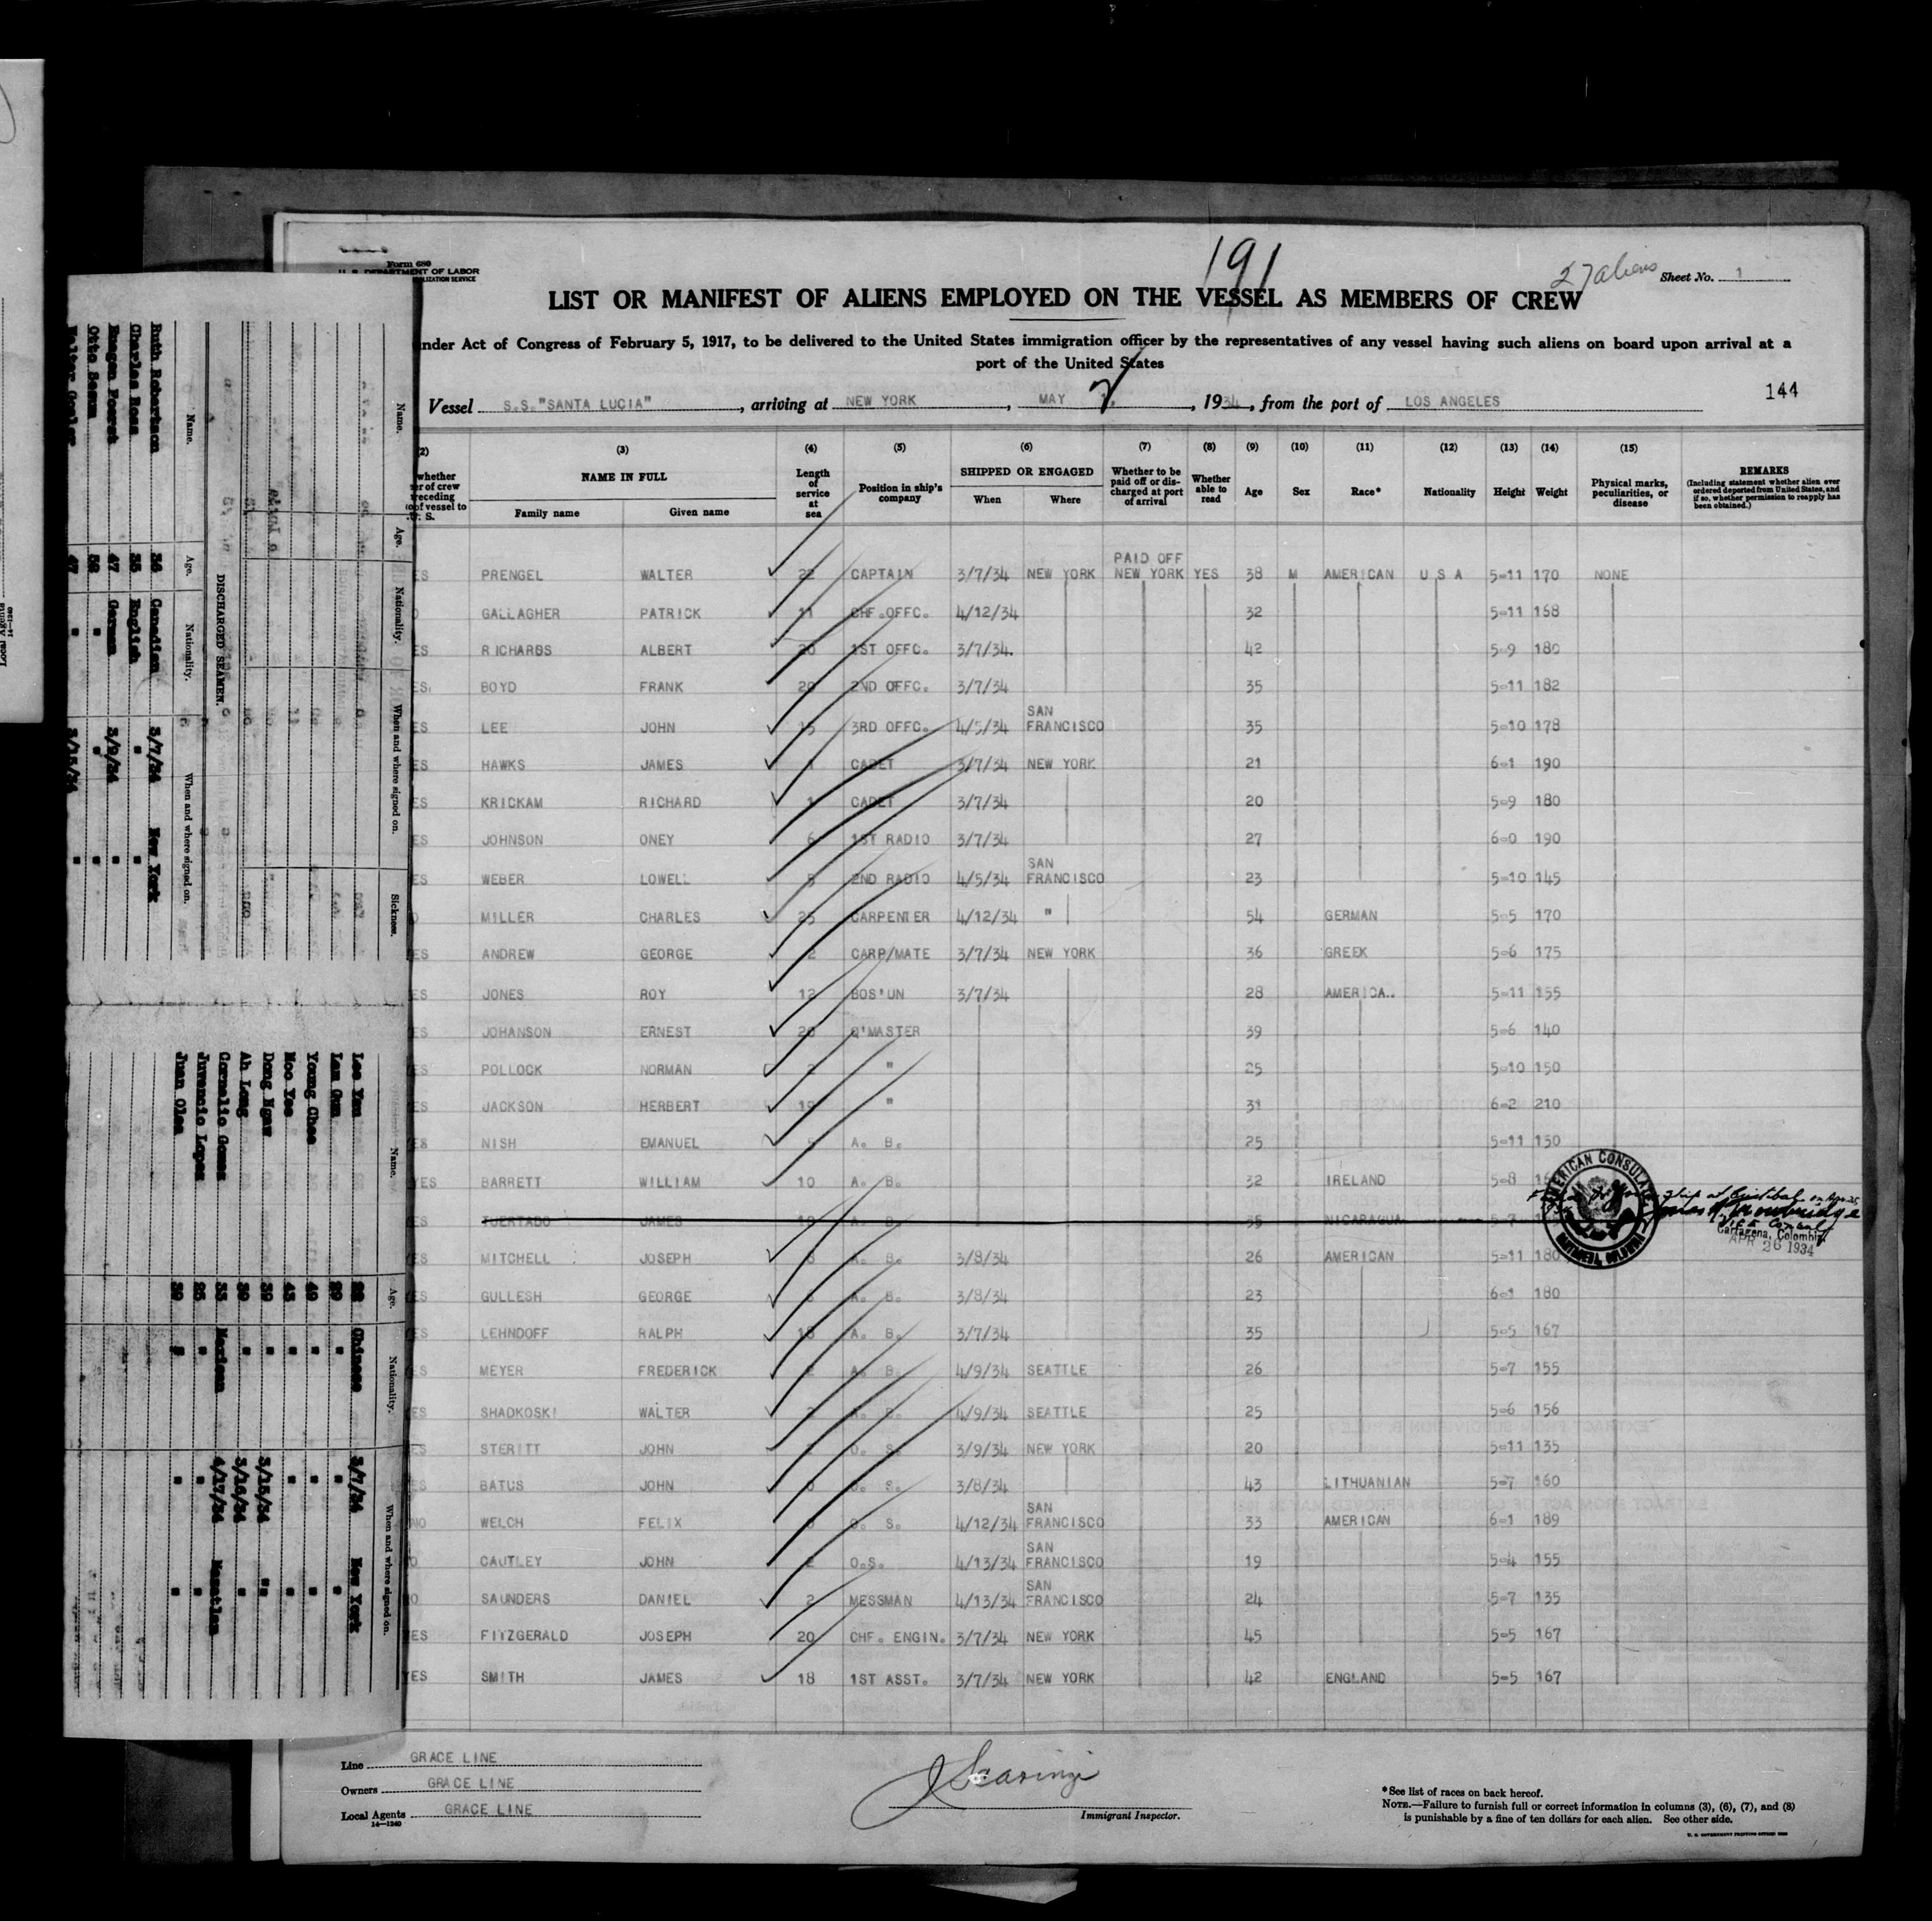 Form 680
U. S. DEPARTMENT OF LABOR
191
27 aliens
Sheet No. 1
LIST OR MANIFEST OF ALIENS EMPLOYED ON THE VESSEL AS MEMBERS OF CREW
nder Act of Congress of February 5, 1917, to be delivered to the United States immigration officer by the representatives of any vessel having such aliens on board upon arrival at a
port of the United States
144
Vessel S.S."SANTA LUCIA", arriving at NEW YORK, MAY 1, 1934, from the port of LOS ANGELES
(2) (3) (4) (5) (6) (7) (8) (9) (10) (11) (12) (13) (14) (15)
NAME IN FULL
Family name Given name
Length of service at sea
Position in ship's company
SHIPPED OR ENGAGED
When Where
Whether to be paid off or discharged at port of arrival
Whether able to read
Age Sex Race* Nationality Height Weight
Physical marks, peculiarities, or disease
REMARKS
(Including statement whether alien ever ordered deported from United States, and if so, whether permission to reapply has been obtained.)
ES PRENGEL WALTER 22 CAPTAIN 3/7/34 NEW YORK PAID OFF NEW YORK YES 38 M AMERICAN U S A 5-11 170 NONE
GALLAGHER PATRICK 11 CHF.OFFC. 4/12/34 32 5-11 168
ES RICHARDS ALBERT 20 1ST OFFC. 3/7/34. 42 5-9 180
ES. BOYD FRANK 20 2ND OFFC. 3/7/34 35 5-11 182
ES LEE JOHN 15 3RD OFFC. 4/5/34 SAN FRANCISCO 35 5-10 178
ES HAWKS JAMES CADET 3/7/34 NEW YORK 21 6-1 190
ES KRICKAM RICHARD 1 CADET 3/7/34 20 5-9 180
ES JOHNSON ONEY 6 1ST RADIO 3/7/34 27 6-0 190
ES WEBER LOWELL 5 2ND RADIO 4/5/34 SAN FRANCISCO 23 5-10 145
MILLER CHARLES 25 CARPENTER 4/12/34 " 54 GERMAN 5-5 170
ES ANDREW GEORGE 2 CARP/MATE 3/7/34 NEW YORK 36 GREEK 5-6 175
ES JONES ROY 12 BOS'UN 3/7/34 28 AMERICA.. 5-11 155
ES JOHANSON ERNEST 20 Q'MASTER 39 5-6 140
ES POLLOCK NORMAN 2 " 25 5-10 150
ES JACKSON HERBERT " 31 6-2 210
ES NISH EMANUEL A. B. 25 5-11 150
YES BARRETT WILLIAM 10 A. B. 32 IRELAND 5-8
ES TUERTADO JAMES A. B. 35 NICARAGUA 5-7
ES MITCHELL JOSEPH A. B. 3/8/34 26 AMERICAN 5-11 180
ES GULLESH GEORGE A. B. 3/8/34 23 6-1 180
ES LEHNDOFF RALPH A. B. 3/7/34 35 5-5 167
ES MEYER FREDERICK A. B. 4/9/34 SEATTLE 26 5-7 155
ES SHADKOSKI WALTER A. B. 4/9/34 SEATTLE 25 5-6 156
ES STERITT JOHN O. S. 3/9/34 NEW YORK 20 5-11 135
ES BATUS JOHN O. S. 3/8/34 43 LITHUANIAN 5-7 160
NO WELCH FELIX O. S. 4/12/34 SAN FRANCISCO 33 AMERICAN 6-1 189
O CAUTLEY JOHN 2 O.S. 4/13/34 SAN FRANCISCO 19 5-4 155
O SAUNDERS DANIEL 2 MESSMAN 4/13/34 SAN FRANCISCO 24 5-7 135
ES FITZGERALD JOSEPH 20 CHF. ENGIN. 3/7/34 NEW YORK 45 5-5 167
YES SMITH JAMES 18 1ST ASST. 3/7/34 NEW YORK 42 ENGLAND 5-5 167
AMERICAN CONSULATE
Vice Consul
Cartagena, Colombia
APR 26 1934
Line GRACE LINE
Owners GRACE LINE
Local Agents GRACE LINE
14—1240
Immigrant Inspector.
*See list of races on back hereof.
NOTE.—Failure to furnish full or correct information in columns (3), (6), (7), and (8)
is punishable by a fine of ten dollars for each alien. See other side.
Name. Age. Nationality. When and where signed on. Sickness.
DISCHARGED SEAMEN.
Name. Age. Nationality. When and where signed on.
Ruth Robertson 36 Canadian 3/7/34 New York
Charles Ross 35 English " "
Eugen Posret 47 German 3/9/34 "
Otto Segum " " "
47 " 3/15/34 "
Name. Age. Nationality. When and where signed on.
Lee You Chinese 3/7/34 New York
Lam Gum 29 " " "
Young Chee 40 " " "
Moo Yee 43 " " "
Dong Ngaw 39 " 3/15/34 "
Ah Long 30 " 3/16/34 "
Cornelio Gomez 33 Mexican 4/17/34 Mazatlan
Juvencio Lopez " " "
Juan Olea 30 " " "
Local Agents
14—1240